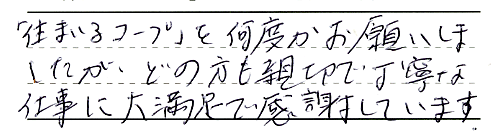 「住まいるコープ」を何度かお願いしま
したが、どの方も親切で丁寧な
仕事に大満足で感謝しています